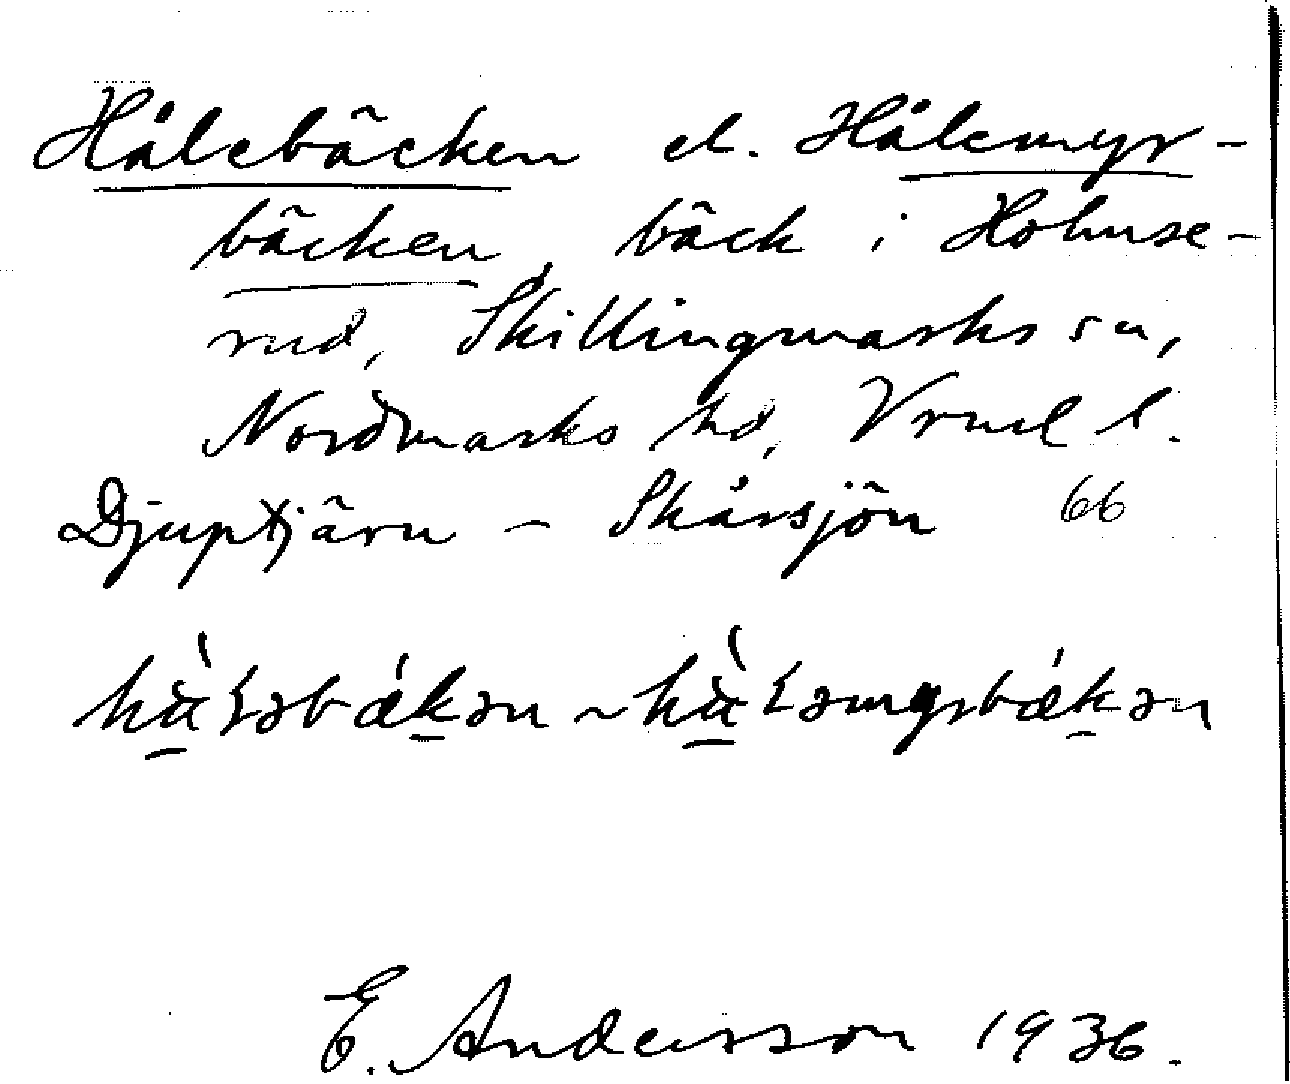 Hålebäcken el. Hålemyr-
bäcken, bäck i Holmse-
rud, Skillingmarks sn,
Nordmarks hd, Vrml l.
Djuptjärn - Skårsjön 66
E. Andersson 1936.